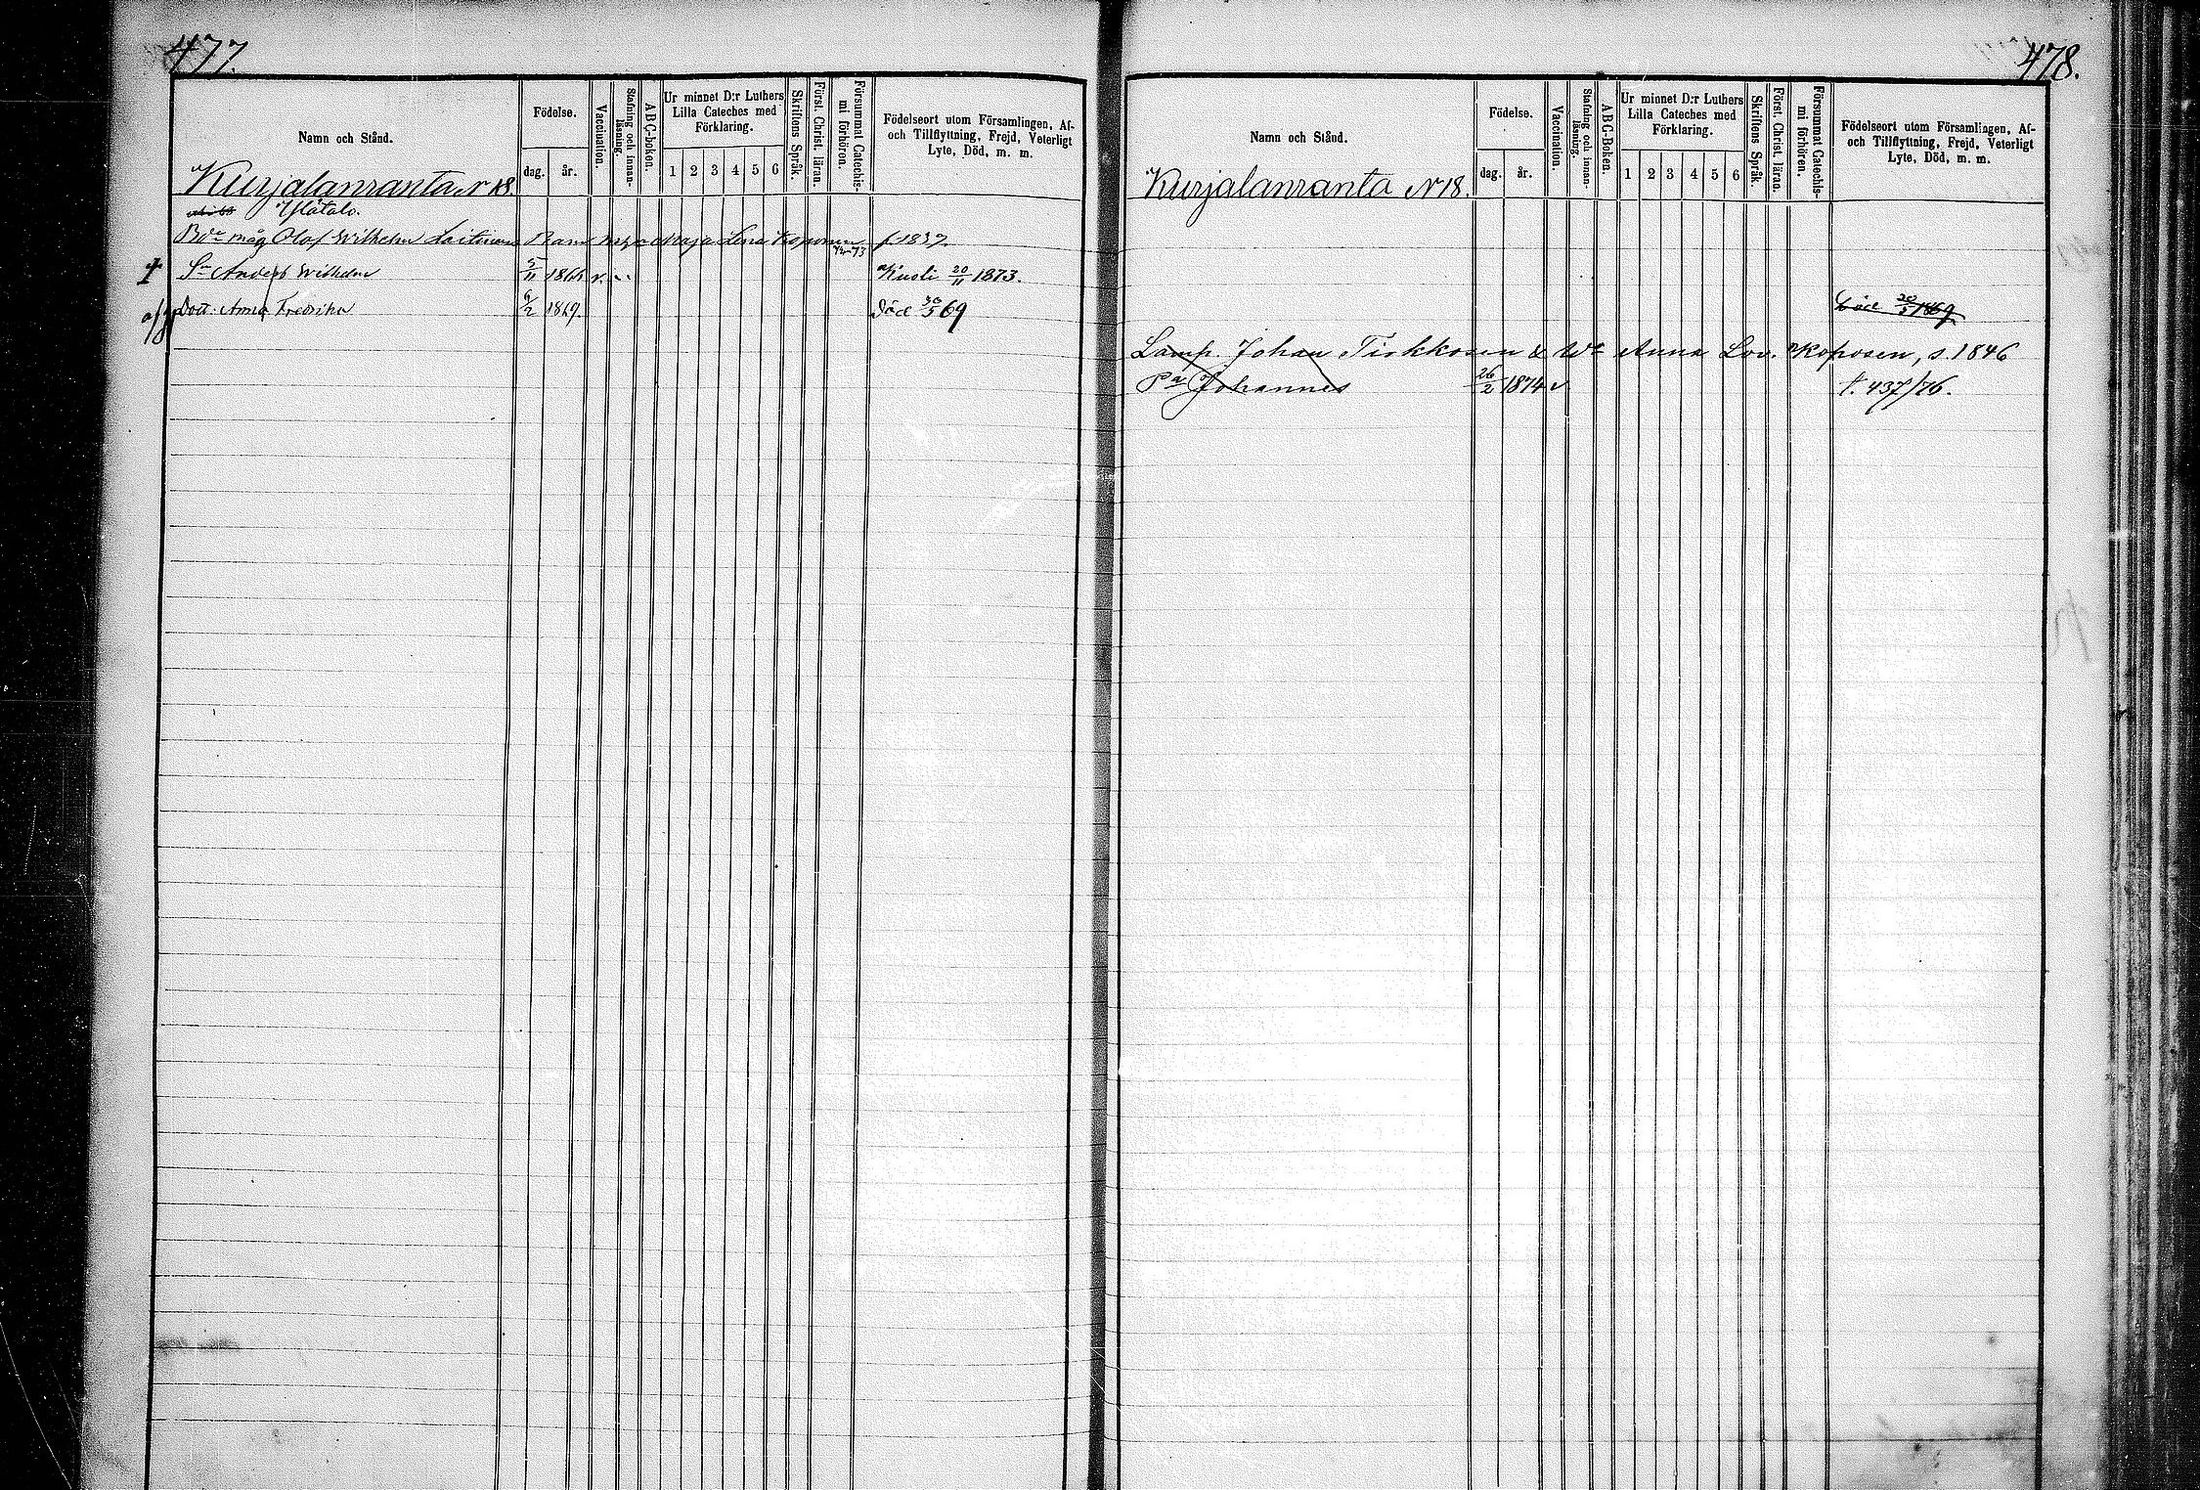 477.
Namn och Stånd.
Födelse.
dag. år.
Vaccination.
Stafning och innan-läsning.
ABC-boken.
Ur minnet D:r Luthers Lilla Cateches med Förklaring.
1 2 3 4 5 6
Skriftens Språk.
Först. Christ. läran.
Försummat Catechis-mi förhören.
Födelseort utom Församlingen, Af-
och Tillflyttning, Frejd, Veterligt
Lyte, Död, m. m.
Kurjalanranta N 18.
Ylätalo.
Bde måg Olof Wilhelm Laitinen Maja Lena Koponen f. 1837.
† Sn Anders Wilhelm 5/11 1866 v. Kuoli 20/11 1873.
Dott. Anna Fredrika 6/2 1869. Död 30/5 69
478.
Namn och Stånd.
Födelse.
dag. år.
Vaccination.
Stafning och innan-läsning.
ABC-Boken.
Ur minnet D:r Luthers Lilla Cateches med Förklaring.
1 2 3 4 5 6
Skriftens Språk.
Först. Christ. läran.
Försummat Catechis-mi förhören.
Födelseort utom Församlingen, Af-
och Tillflyttning, Frejd, Veterligt
Lyte, Död, m. m.
Kurjalanranta N 18.
Död 30/5 1869
Lamp. Johan Tirkkosen & Wn Anna Lov. Koposen, s. 1846
Pa Johannes 26/2 1874 v t. 437/76.